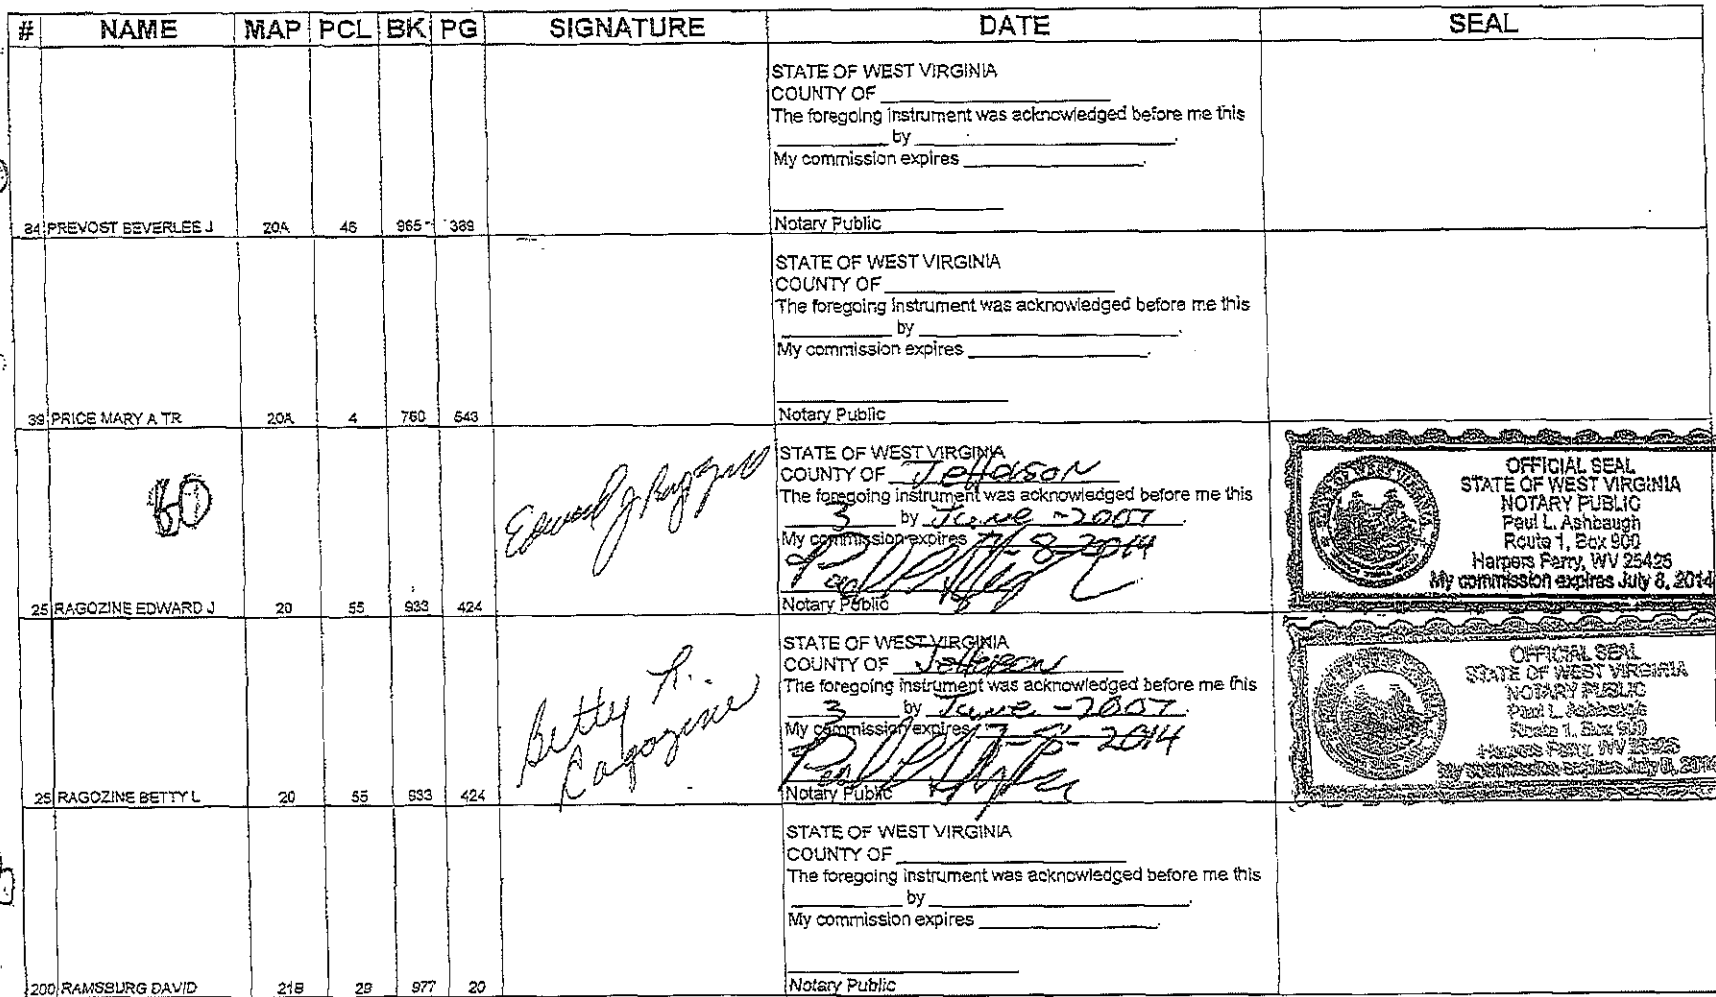 # NAME MAP PCL BK PG SIGNATURE DATE SEAL
STATE OF WEST VIRGINIA
COUNTY OF
The foregoing instrument was acknowledged before me this
by
My commission expires
Notary Public
84 PREVOST BEVERLEE J 20A 46 965 389
STATE OF WEST VIRGINIA
COUNTY OF
The foregoing instrument was acknowledged before me this
by
My commission expires
Notary Public
39 PRICE MARY A TR 20A 4 760 543
60
Edward J Ragozine
STATE OF WEST VIRGINIA
COUNTY OF Jefferson
The foregoing instrument was acknowledged before me this
3 by June - 2007
My commission expires 7-8-2014
Notary Public
OFFICIAL SEAL
STATE OF WEST VIRGINIA
NOTARY PUBLIC
Paul L. Ashbaugh
Route 1, Box 900
Harpers Ferry, WV 25425
My commission expires July 8, 2014
25 RAGOZINE EDWARD J 20 55 933 424
Betty L.
Ragozine
STATE OF WEST VIRGINIA
COUNTY OF Jefferson
The foregoing instrument was acknowledged before me this
3 by June - 2007
My commission expires 7-8-2014
Notary Public
OFFICIAL SEAL
STATE OF WEST VIRGINIA
NOTARY PUBLIC
Paul L. Ashbaugh
Route 1, Box 900
Harpers Ferry, WV 25425
My commission expires July 8, 2014
25 RAGOZINE BETTY L 20 55 933 424
STATE OF WEST VIRGINIA
COUNTY OF
The foregoing instrument was acknowledged before me this
by
My commission expires
Notary Public
200 RAMSBURG DAVID 21B 29 977 20